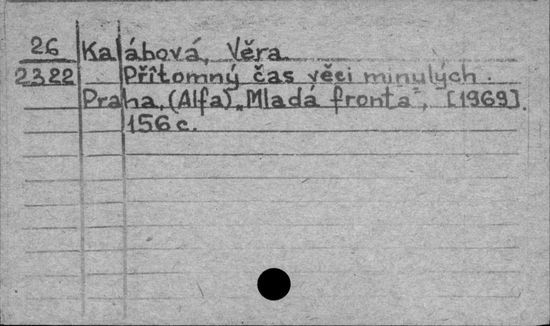 26 Kalábová, Věra
2322 Přítomný čas věci minulých.
Praha, (Alfa) „Mladá fronta", [1969].
156 c.